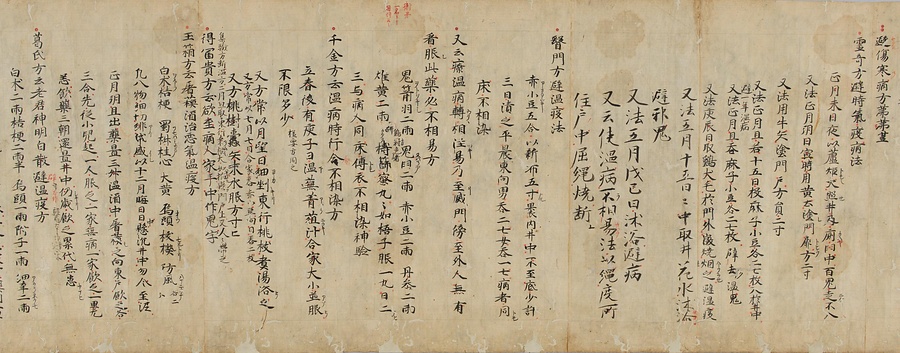 避傷寒病方第廿三
霊奇方避時氣疫病法
正月未日夜以蘆炬火照井及廁中百鬼走不入
又法正月朔旦寅時用黄土塗門扉方二寸
又法用牛矢塗門戸方員二寸
又法正月旦若十五日投麻子小豆各二七枚入井中
避一年温病
又法正月旦呑麻子小豆各二七枚
又法庚辰日取鷄犬毛於門外微焼烟之避温疫
又法五月十五日日中取井花水沐浴
避邪鬼
又法五月戊己日沐浴避病
又云住温病不相易法以縄度所
住戸中屈縄燒断
醫門方避温疫法
赤小豆五合以新布五寸裹内井中不至底少許
三日清之平晨東向男呑二七女呑一七病者同
床不相染
又云療温病轉相注易乃至滅門傍至外人無有
看服此藥必不相易方
鬼箭羽二兩鬼臼二兩赤小豆二兩丹參二兩
雄黄二兩
三与病人同床傅衣不相染神驗
千金方云温病時行令不相染方
立春後有庚子日温蕪菁葅汁合家大小並服
不限多少
又方常以月望日細剉東行桃枝煮湯浴之
又方桃樹蠹矢末水服方寸匕
得冨貴方云欲至病人家手中作鬼字
玉箱方云屠蘇酒治悪氣温疫方
白朮桔梗蜀椒桂心大黄烏頭菝楔防風
凡八物細切緋袋盛以十二月晦日日懸沉井中勿令至泥
正月朔旦出藥置三升温酒中屠蘇之向東戸飲之各
三合先從小兒起一人服之一家無病一家飲之一里無
恙飲藥三朝還置井中仍歳飲之累代無患
葛氏方云老君神明白散避温疫方
白朮二兩桔梗二兩半烏頭一兩附子一兩